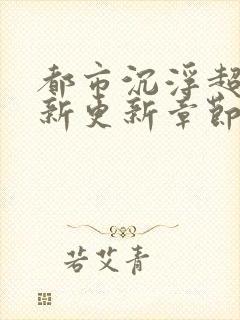 都市沉浮超
新更新章節
若艾青